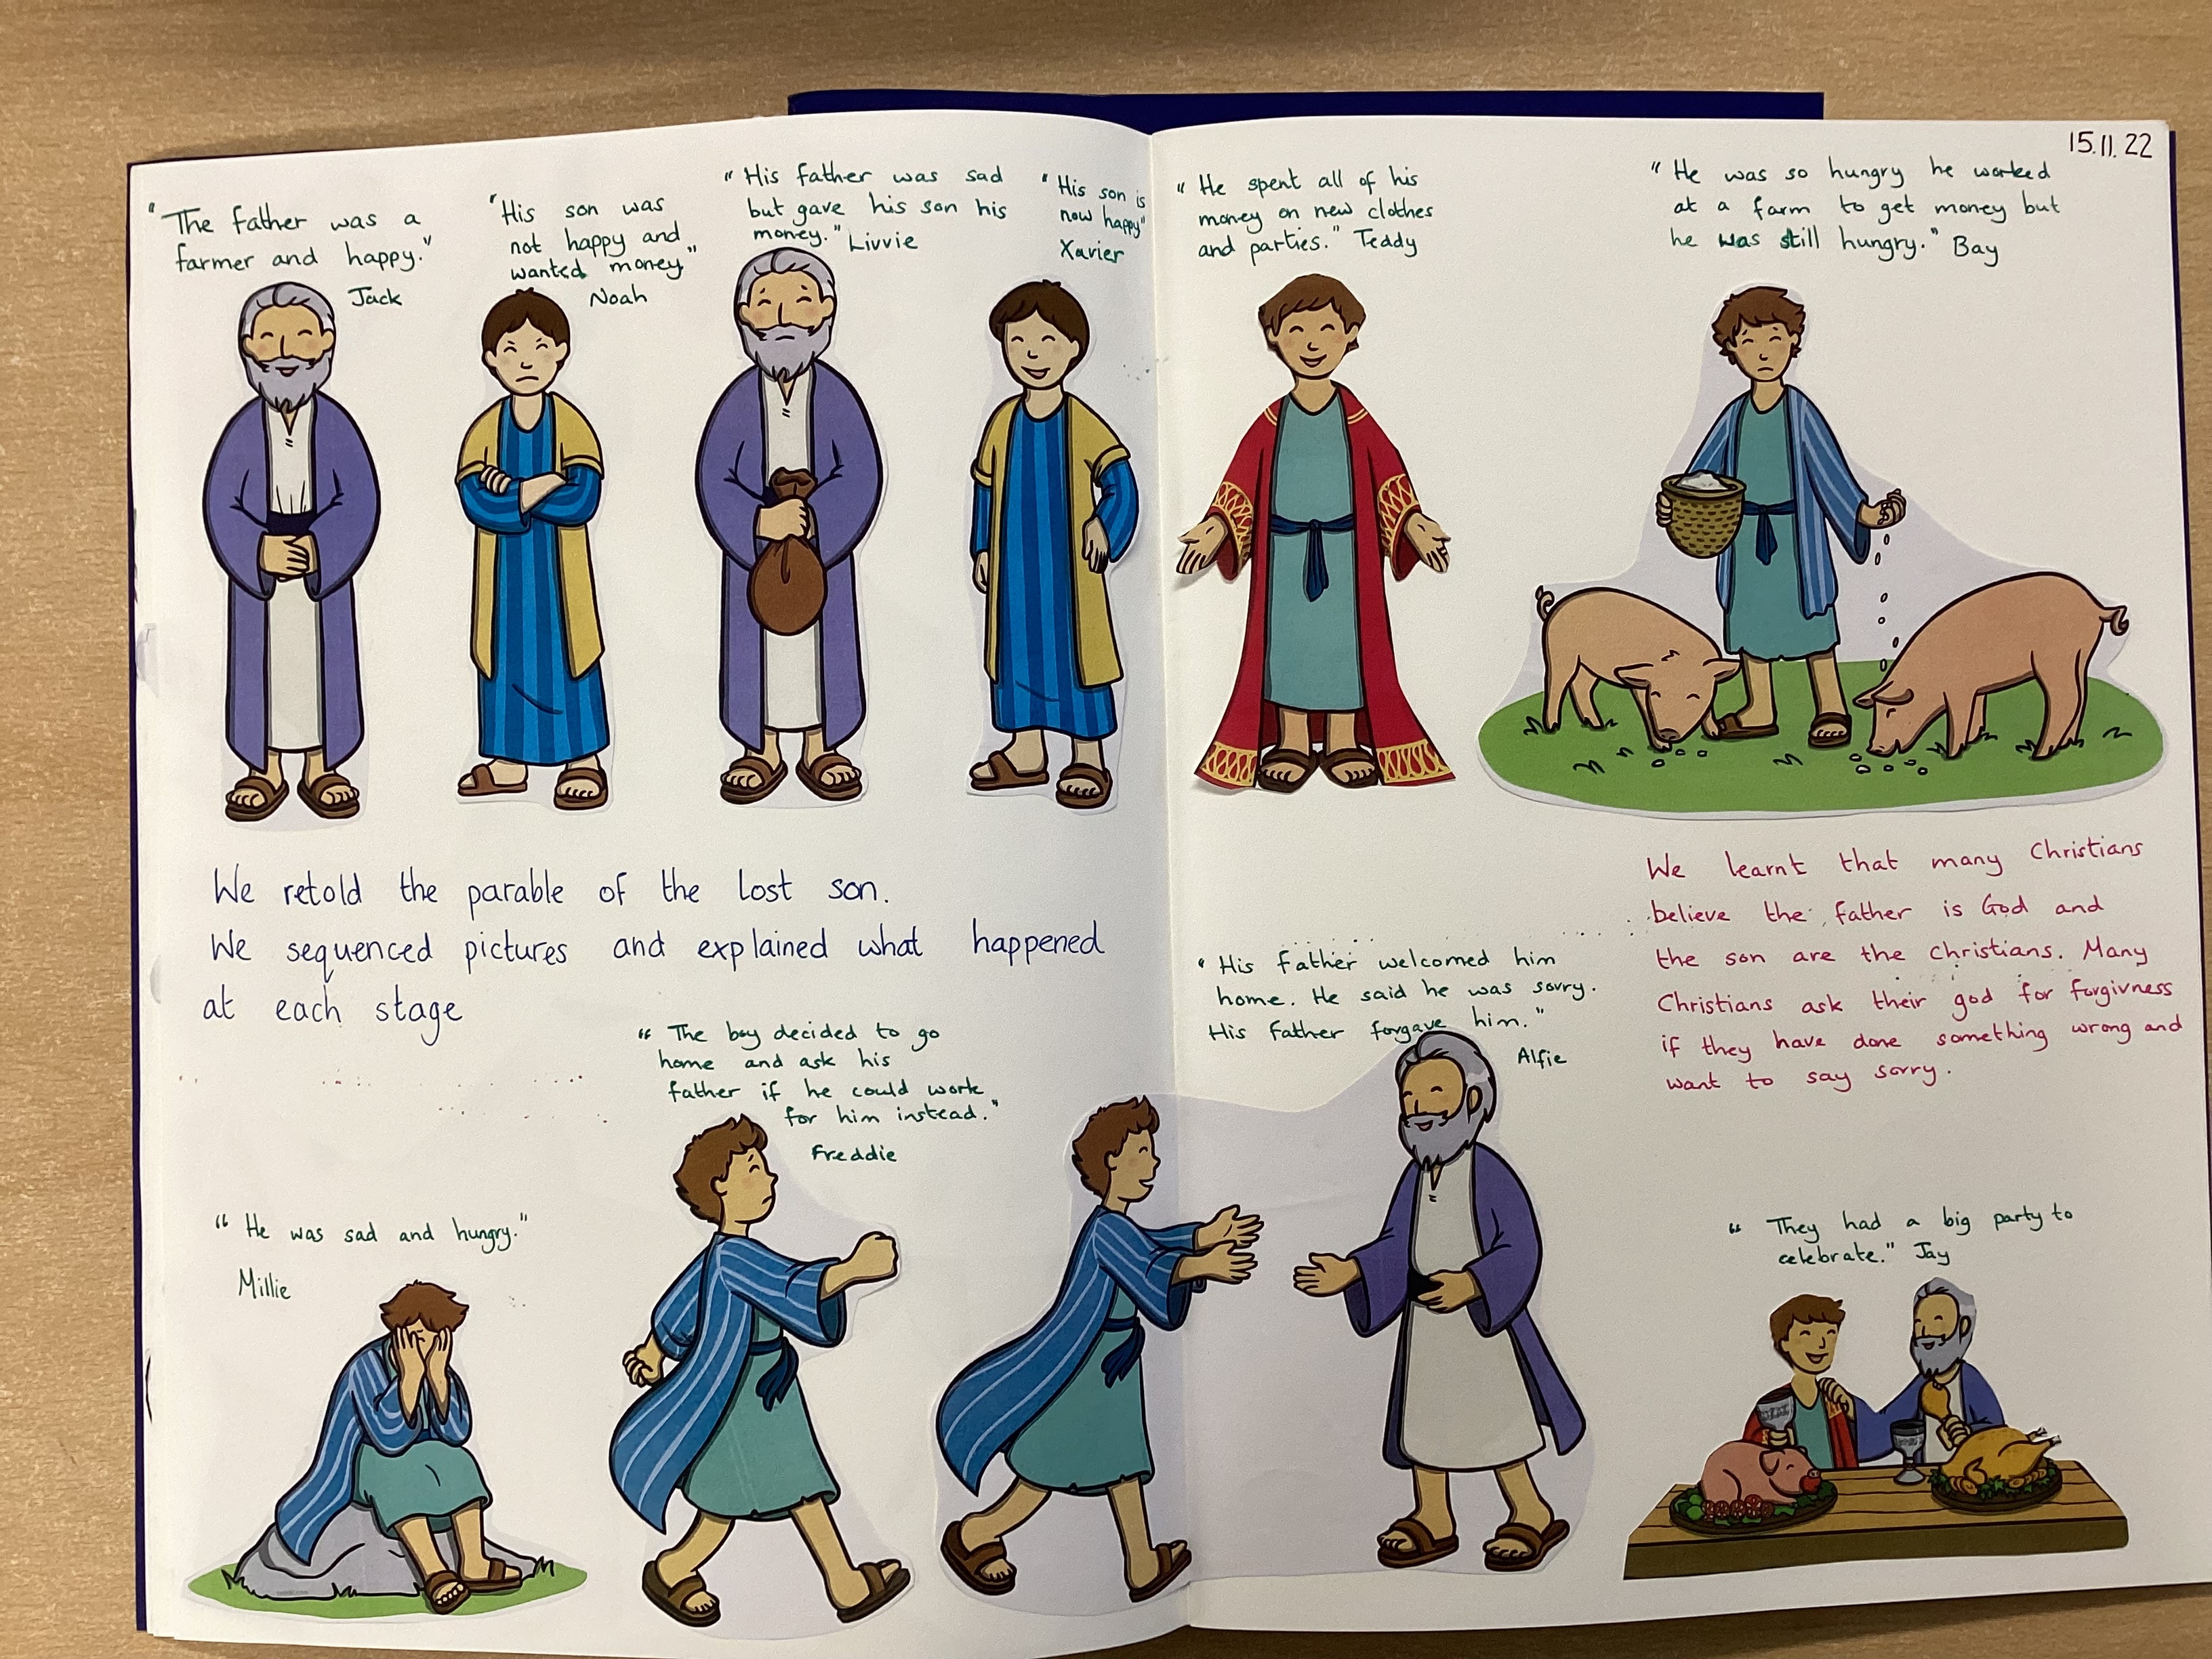 15.11.22
"The father was a
farmer and happy."
Jack
"His son was
not happy and
wanted money"
Noah
"His father was sad
but gave his son his
money." Livvie
"His son is
now happy"
Xavier
"He spent all of his
money on new clothes
and parties." Teddy
"He was so hungry he worked
at a farm to get money but
he was still hungry." Bay
We retold the parable of the lost son.
We sequenced pictures and explained what happened
at each stage
We learnt that many Christians
believe the father is God and
the son are the Christians. Many
Christians ask their god for forgivness
if they have done something wrong and
want to say sorry.
"He was sad and hungry."
Millie
"The boy decided to go
home and ask his
father if he could work
for him instead."
Freddie
"His father welcomed him
home. He said he was sorry.
His father forgave him."
Alfie
"They had a big party to
celebrate." Jay